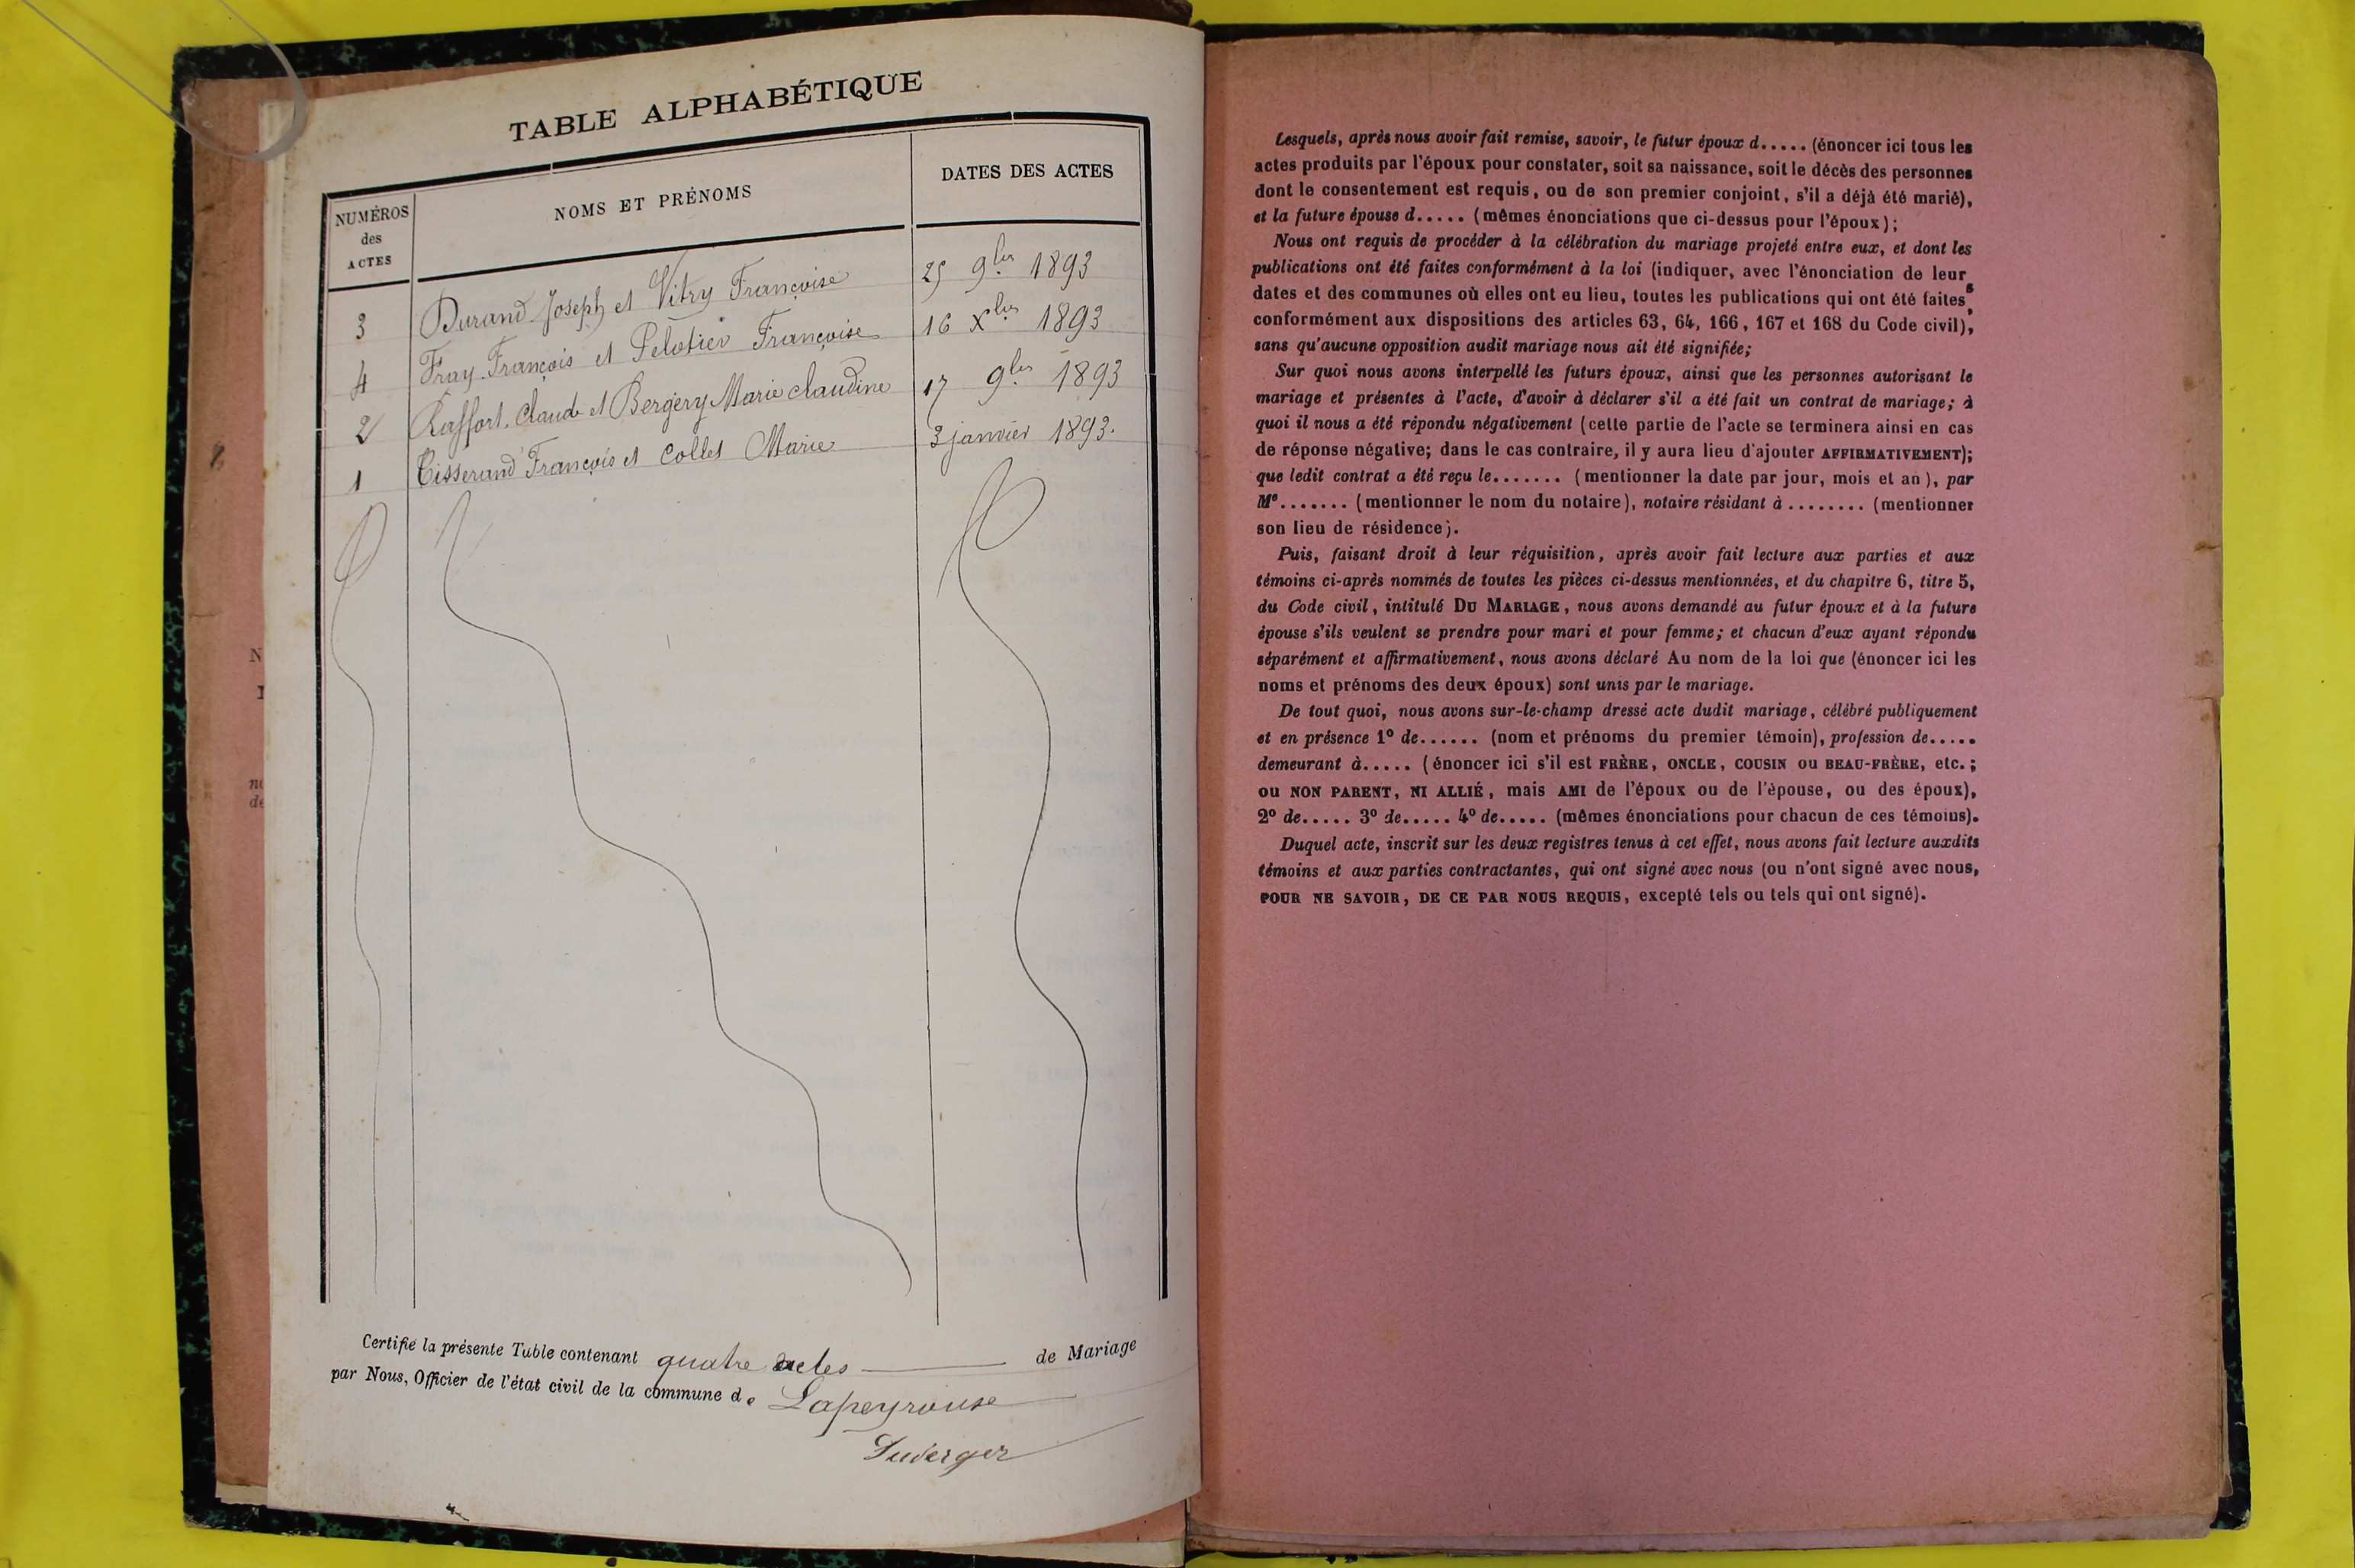 TABLE ALPHABÉTIQUE
NUMÉROS
des
ACTES
NOMS ET PRÉNOMS
DATES DES ACTES
3 Durand Joseph et Vitry Françoise 25 9bre 1893
4 Fray François et Pelotier Françoise 16 Xbre 1893
2 Raffort Claude et Bergery Marie claudine 17 9bre 1893
1 Tisserand François et Collet Marie 3 janvier 1893.
Certifié la présente Table contenant quatre actes de Mariage
par Nous, Officier de l'état civil de la commune de Lapeyrouse
Lesquels, après nous avoir fait remise, savoir, le futur époux d..... (énoncer ici tous les
actes produits par l'époux pour constater, soit sa naissance, soit le décès des personnes
dont le consentement est requis, ou de son premier conjoint, s'il a déjà été marié),
et la future épouse d..... (mêmes énonciations que ci-dessus pour l'époux);
Nous ont requis de procéder à la célébration du mariage projeté entre eux, et dont les
publications ont été faites conformément à la loi (indiquer, avec l'énonciation de leurs
dates et des communes où elles ont eu lieu, toutes les publications qui ont été faites,
conformément aux dispositions des articles 63, 64, 166, 167 et 168 du Code civil),
sans qu'aucune opposition audit mariage nous ait été signifiée;
Sur quoi nous avons interpellé les futurs époux, ainsi que les personnes autorisant le
mariage et présentes à l'acte, d'avoir à déclarer s'il a été fait un contrat de mariage; à
quoi il nous a été répondu négativement (cette partie de l'acte se terminera ainsi en cas
de réponse négative; dans le cas contraire, il y aura lieu d'ajouter AFFIRMATIVEMENT);
que ledit contrat a été reçu le....... (mentionner la date par jour, mois et an), par
Me....... (mentionner le nom du notaire), notaire résidant à ........ (mentionner
son lieu de résidence).
Puis, faisant droit à leur réquisition, après avoir fait lecture aux parties et aux
témoins ci-après nommés de toutes les pièces ci-dessus mentionnées, et du chapitre 6, titre 5,
du Code civil, intitulé DU MARIAGE, nous avons demandé au futur époux et à la future
épouse s'ils veulent se prendre pour mari et pour femme; et chacun d'eux ayant répondu
séparément et affirmativement, nous avons déclaré Au nom de la loi que (énoncer ici les
noms et prénoms des deux époux) sont unis par le mariage.
De tout quoi, nous avons sur-le-champ dressé acte dudit mariage, célébré publiquement
et en présence 1° de...... (nom et prénoms du premier témoin), profession de.....
demeurant à..... (énoncer ici s'il est FRÈRE, ONCLE, COUSIN ou BEAU-FRÈRE, etc.;
ou NON PARENT, NI ALLIÉ, mais AMI de l'époux ou de l'épouse, ou des époux),
2° de..... 3° de..... 4° de..... (mêmes énonciations pour chacun de ces témoins).
Duquel acte, inscrit sur les deux registres tenus à cet effet, nous avons fait lecture auxdits
témoins et aux parties contractantes, qui ont signé avec nous (ou n'ont signé avec nous,
POUR NE SAVOIR, DE CE PAR NOUS REQUIS, excepté tels ou tels qui ont signé).